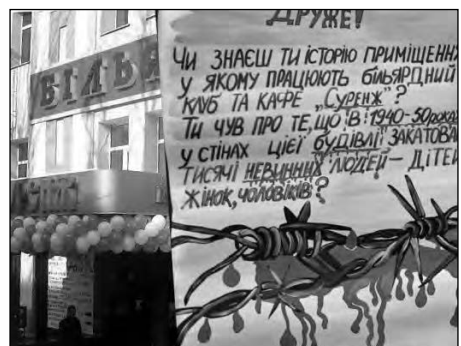 БІЛЬЯ
ДРУЖЕ!
ЧИ ЗНАЄШ ТИ ІСТОРІЮ ПРИМІЩЕНН
У ЯКОМУ ПРАЦЮЮТЬ БІЛЬЯРДНИЙ
КЛУБ ТА КАФЕ „СУРЕНЖ"?
ТИ ЧУВ ПРО ТЕ, ЩО В 1940-50 рока
У СТІНАХ ЦІЄЇ БУДІВЛІ ЗАКАТОВА
ТИСЯЧІ НЕВИННИХ ЛЮДЕЙ – ДІТЕЙ
ЖІНОК, ЧОЛОВІКІВ?